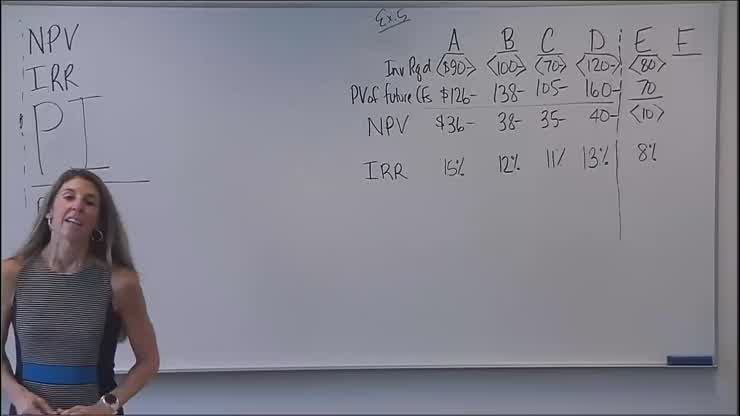 Ex.5
NPV
IRR
PI
A B C D E F
Inv Rqd <$90> <100-> <70> <120-> <80>
PV of future CFs $126- 138- 105- 160- 70
NPV $36- 38- 35- 40- <10>
IRR 15% 12% 11% 13% 8%